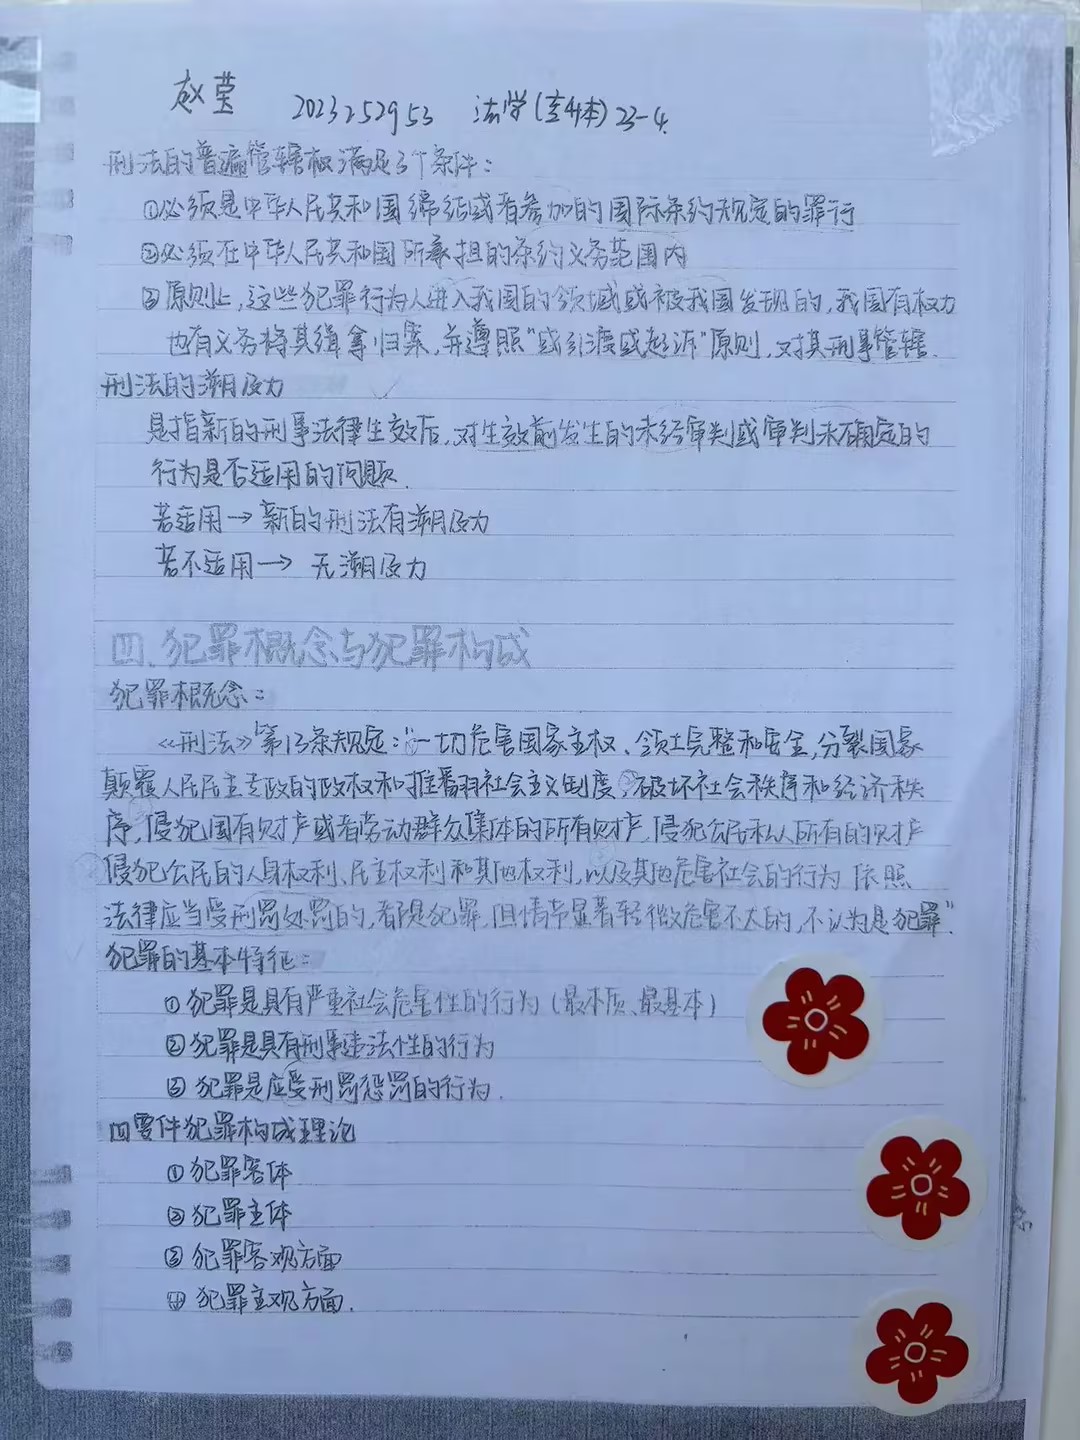 赵莹 2023252953 法学(专升本)23-4
刑法的普遍管辖权满足3个条件:
①必须是中华人民共和国缔结或者参加的国际条约规定的罪行
②必须在中华人民共和国所承担的条约义务范围内
③原则上,这些犯罪行为人进入我国的领域或被我国发现的,我国有权力
也有义务将其缉拿归案,并遵照"或引渡或起诉"原则,对其刑事管辖.
刑法的溯及力
是指新的刑事法律生效后,对生效前发生的未经审判或审判未确定的
行为是否适用的问题.
若适用→新的刑法有溯及力
若不适用→ 无溯及力
四.犯罪概念与犯罪构成
犯罪概念:
《刑法》第13条规定:"一切危害国家主权、领土完整和安全,分裂国家
颠覆人民民主专政的政权和推翻社会主义制度,破坏社会秩序和经济秩
序,侵犯国有财产或者劳动群众集体的所有财产,侵犯公民私人所有的财产
侵犯公民的人身权利、民主权利和其他权利,以及其他危害社会的行为 依照
法律应当受刑罚处罚的,都是犯罪,但情节显著轻微危害不大的,不认为是犯罪".
犯罪的基本特征:
①犯罪是具有严重社会危害性的行为(最本质、最基本)
②犯罪是具有刑事违法性的行为
③犯罪是应受刑罚惩罚的行为.
四要件犯罪构成理论
①犯罪客体
②犯罪主体
③犯罪客观方面
④犯罪主观方面.